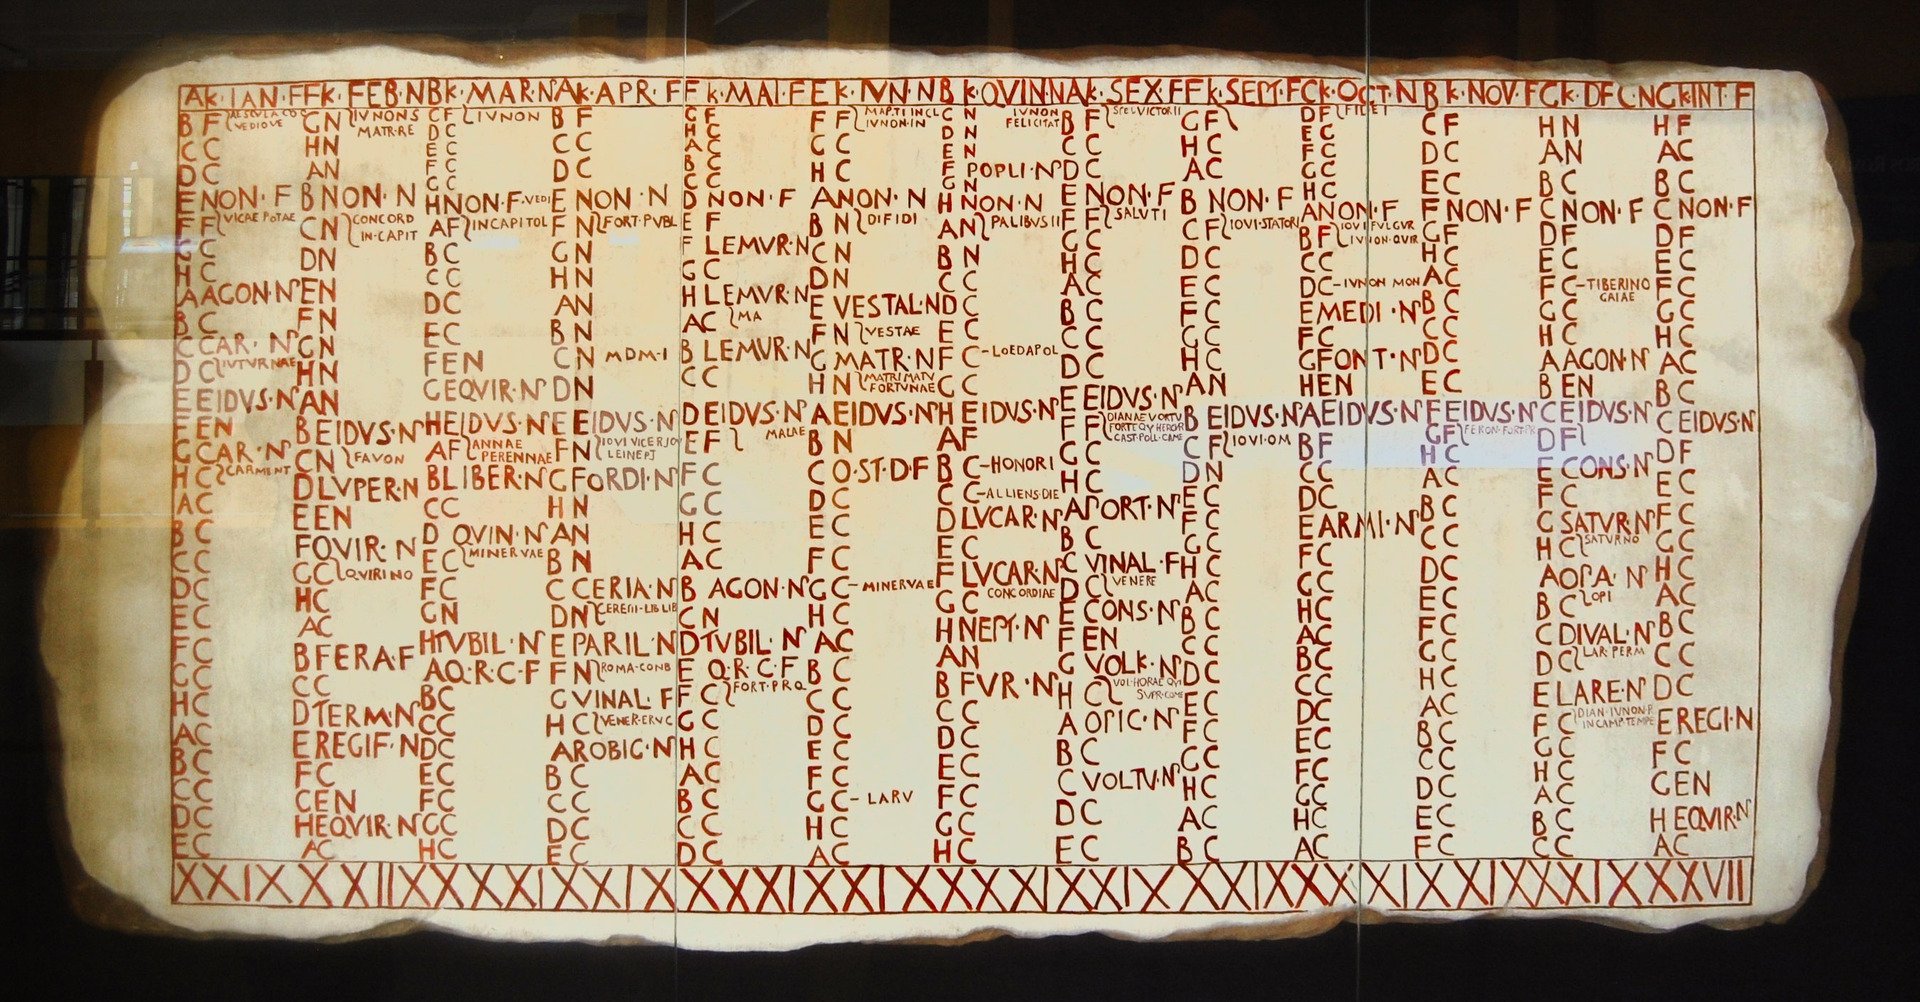 AK·IAN·F FK·FEB·N BK·MAR·N AK·APR·F FK·MAI·F EK·IVN·N BK·QVIN·N AK·SEX·F FK·SEPT·F CK·OCT·N BK·NOV·F GK·DEC·N GK·INT·F
B F
VEDIOVE
C C
D C
E NON·F
F F VICAE POTAE
G C
H C
A AGON·N
B C
C CAR·N
D C IVTVRNAE
E EIDVS·N
F EN
G CAR·N
H C CARMENT
A C
B C
C C
D C
E C
F C
G C
H C
A C
B C
C C
D C
E C
G N IVNONS
MATR·RE
H N
A N
B NON·N
C N CONCORD
IN·CAPIT
D N
E N
F N
G N
H N
A N
B EIDVS·N
C N FAVON
D LVPER·N
E EN
F QVIR·N
G C QVIRINO
H C
A C
B FERA·F
C C
D TERM·N
E REGIF·N
F C
G EN
H EQVIR·N
A C
C F IVNON
D C
E C
F C
G C
H NON·F VEDI
A F IN CAPITOL
B C
C C
D C
E C
F EN
G EQVIR·N
H EIDVS·N
A F ANNAE
PERENNAE
B LIBER·N
C C
D QVIN·N
E C MINERVAE
F C
G N
H TVBIL·N
A Q·R·C·F
B C
C C
D C
E C
F C
G C
H C
B F
C C
D C
E NON·N
F N FORT·PVBL
G N
H N
A N
B N
C N M D M·I
D N
E EIDVS·N
F N IOVI VICE
LEINE
G FORDI·N
H N
A N
B N
C CERIA·N
D N
E PARIL·N
F N ROMA·COND
G VINAL·F
H C VENER·ERVC
A ROBIG·N
B C
C C
D C
E C
G F
H C
A C
B C
C C
D NON·F
E F
F LEMVR·N
G C
H LEMVR·N
A C MA
B LEMVR·N
C C
D EIDVS·N
E F MAIAE
F C
G C
H C
A C
B AGON·N
C N
D TVBIL·N
E Q·R·C·F
F C FORT·PR·Q
G C
H C
A C
B C
C C
D C
F F MARTI IN CL
IVNON·IN
G C
H C
A NON·N
B N DIFIDI
C N
D N
E VESTAL·N
F N VESTAE
G MATR·N
H N MATRI MATV
FORTVNAE
A EIDVS·N
B N
C Q·ST·D·F
D C
E C
F C
G C MINERVAE
H C
A C
B C
C C
D C
E C
F C
G C LARV
H C
A C
C N IVNON
FELICITAT
D N
E N
F POPLI·N
G N
H NON·N
A N PALIBVS II
B N
C N
D C
E C
F C LOEDAPOL
G C
H EIDVS·N
A F
B C HONORI
C C ALLIENS·DIE
D LVCAR·N
E C
F LVCAR·N
G C CONCORDIAE
H NEPT·N
A N
B FVR·N
C C
D C
E C
F C
G C
H C
B F SPEI VICTOR II
C C
D C
E NON·F
F F SALVTI
G C
H C
A C
B C
C C
D C
E EIDVS·N
F F DIANAE VORTV
FORT·EQV HERCVR
CAST·POLL·CAME
G C
H C
A PORT·N
B C
C VINAL·F
D C VENERE
E CONS·N
F EN
G VOLK·N
H C VOL·HORAE QVI
SVPR·COME
A OPIC·N
B C
C VOLTV·N
D C
E C
G F
H C
A C
B NON·F
C F IOVI·STATORI
D C
E C
F C
G C
H C
A N
B EIDVS·N
C F IOVI·OM
D N
E C
F C
G C
H C
A C
B C
C C
D C
E C
F C
G C
H C
A C
B C
D F FIDEI
E C
F C
G C
H C
A NON·F
B F IOVI FVLGVR
IVNON·QVIR
C C
D C IVNON MON
E MEDI·N
F C
G FONT·N
H EN
A EIDVS·N
B F
C C
D C
E ARMI·N
F C
G C
H C
A C
B C
C C
D C
E C
F C
G C
H C
A C
C F
D C
E C
F NON·F
G F
H C
A C
B C
C C
D C
E C
F EIDVS·N
G F FERON·FORT·PR
H C
A C
B C
C C
D C
E C
F C
G C
H C
A C
B C
C C
D C
E C
F C
H N
A N
B C
C NON·F
D F
E C
F C TIBERINO
GAIAE
G C
H C
A AGON·N
B EN
C EIDVS·N
D F
E CONS·N
F C
G SATVR·N
H C SATVRNO
A OPA·N
B C OPI
C DIVAL·N
D C LAR·PERM
E LARE·N
F C DIAN·IVNON·R
IN CAMP·TEMPE
G C
H C
A C
B C
C C
H F
A C
B C
C NON·F
D F
E C
F C
G C
H C
A C
B C
C EIDVS·N
D F
E C
F C
G C
H C
A C
B C
C C
D C
E REGI·N
F C
G EN
H EQVIR·N
A C
XXIX XXIIX XXXI XXIX XXXI XXIX XXXI XXIX XXIX XXXI XXIX XXIX XXVII